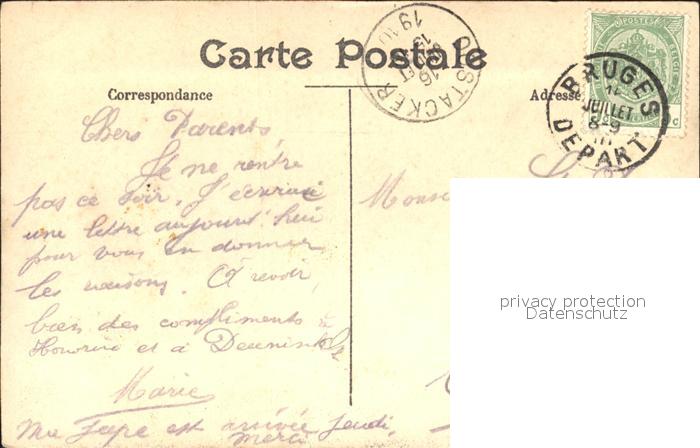 Carte Postale
Correspondance
Adresse
OOSTACKER
16
1910
BRUGES
14
JUILLET
8-9
DEPART
POSTES
Chers Parents
Je ne rentre
pas ce soir. J'écrirai
une lettre aujourd'hui
pour vous en donner
les raisons. A revoir,
bien des compliments à
Honorine et à
Marie
Ma Jupe est arrivée Jeudi,
merci
privacy protection
Datenschutz